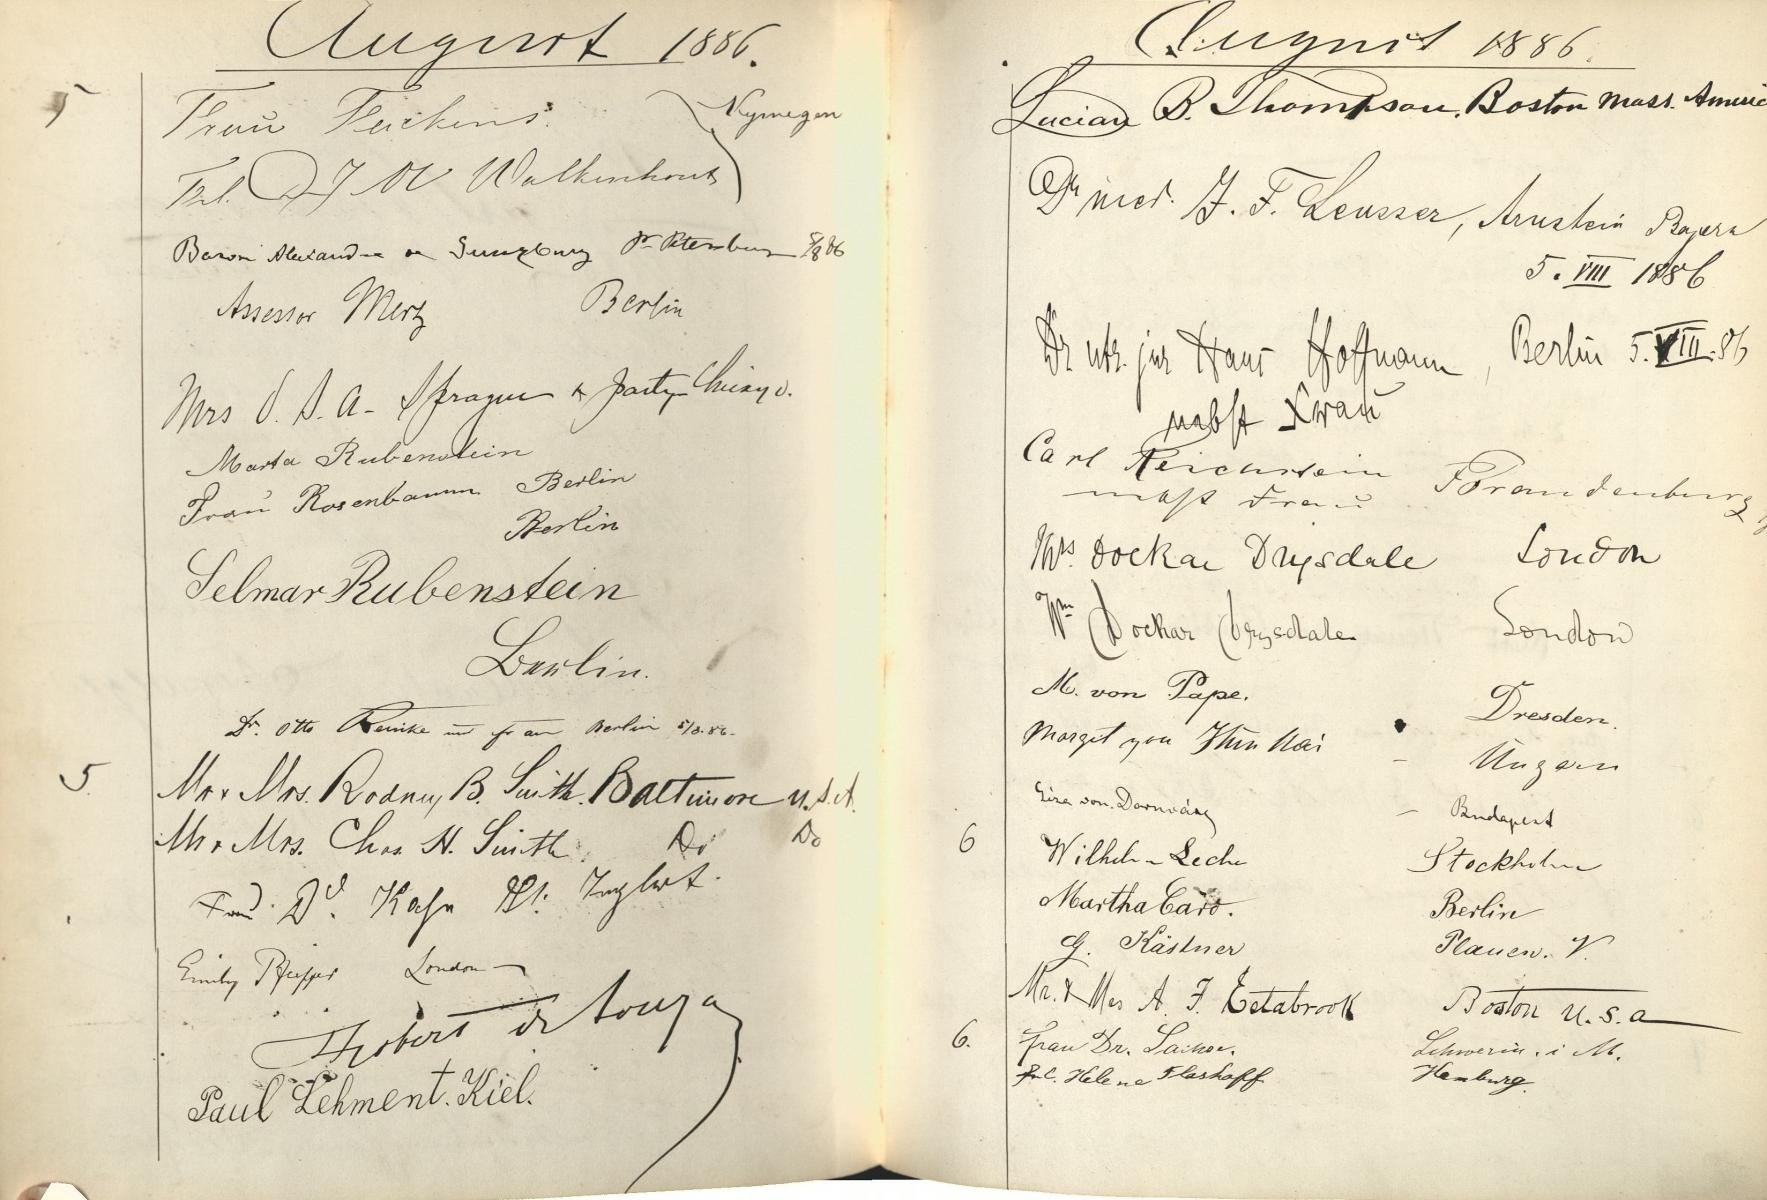 August 1886.
5
Frau Fleickens
Nymegen
Frl. J M Walkenhout
Baron Alexandre de Gunzburg St Petersburg 5/8 86
Assessor Mertz Berlin
Mrs O. S. A. Sprague & party Chicago.
Marta Rubenstein
Frau Rosenbaum Berlin
Berlin
Selmar Rubenstein
Berlin.
Dr. Otto Reinike u frau Berlin 5/8.86.
5.
Mr & Mrs. Rodney B. Smith. Baltimore U.S.A.
Mr & Mrs. Chas. H. Smith Do Do
Frau Dr. Kahn St. Ingbert.
Emily Pfeiffer London
Robert de Souza
Paul Lehment. Kiel.
August 1886.
Lucian B. Thompson. Boston Mass. America
Dr med. J. F. Leusser, Arnstein Bayern
5. VIII 1886
Dr utr. jur Hans Hoffmann, Berlin 5. VIII. 86
nebst Frau
Carl Reichstein Brandenburg
nebst Frau
Mrs. Dockar Drysdale London
Wm Dockar Drysdale London
M. von Pape. Dresden.
Margit von - Ungarn
von - Budapest
6 Wilhelm Leche Stockholm
Martha Caro. Berlin
G. Kästner Plauen. V.
Mr. & Mrs A. F. Estabrook Boston U.S.A
6. Frau Dr. Schwerin. i M.
Frl. Helene Flashoff Hamburg.